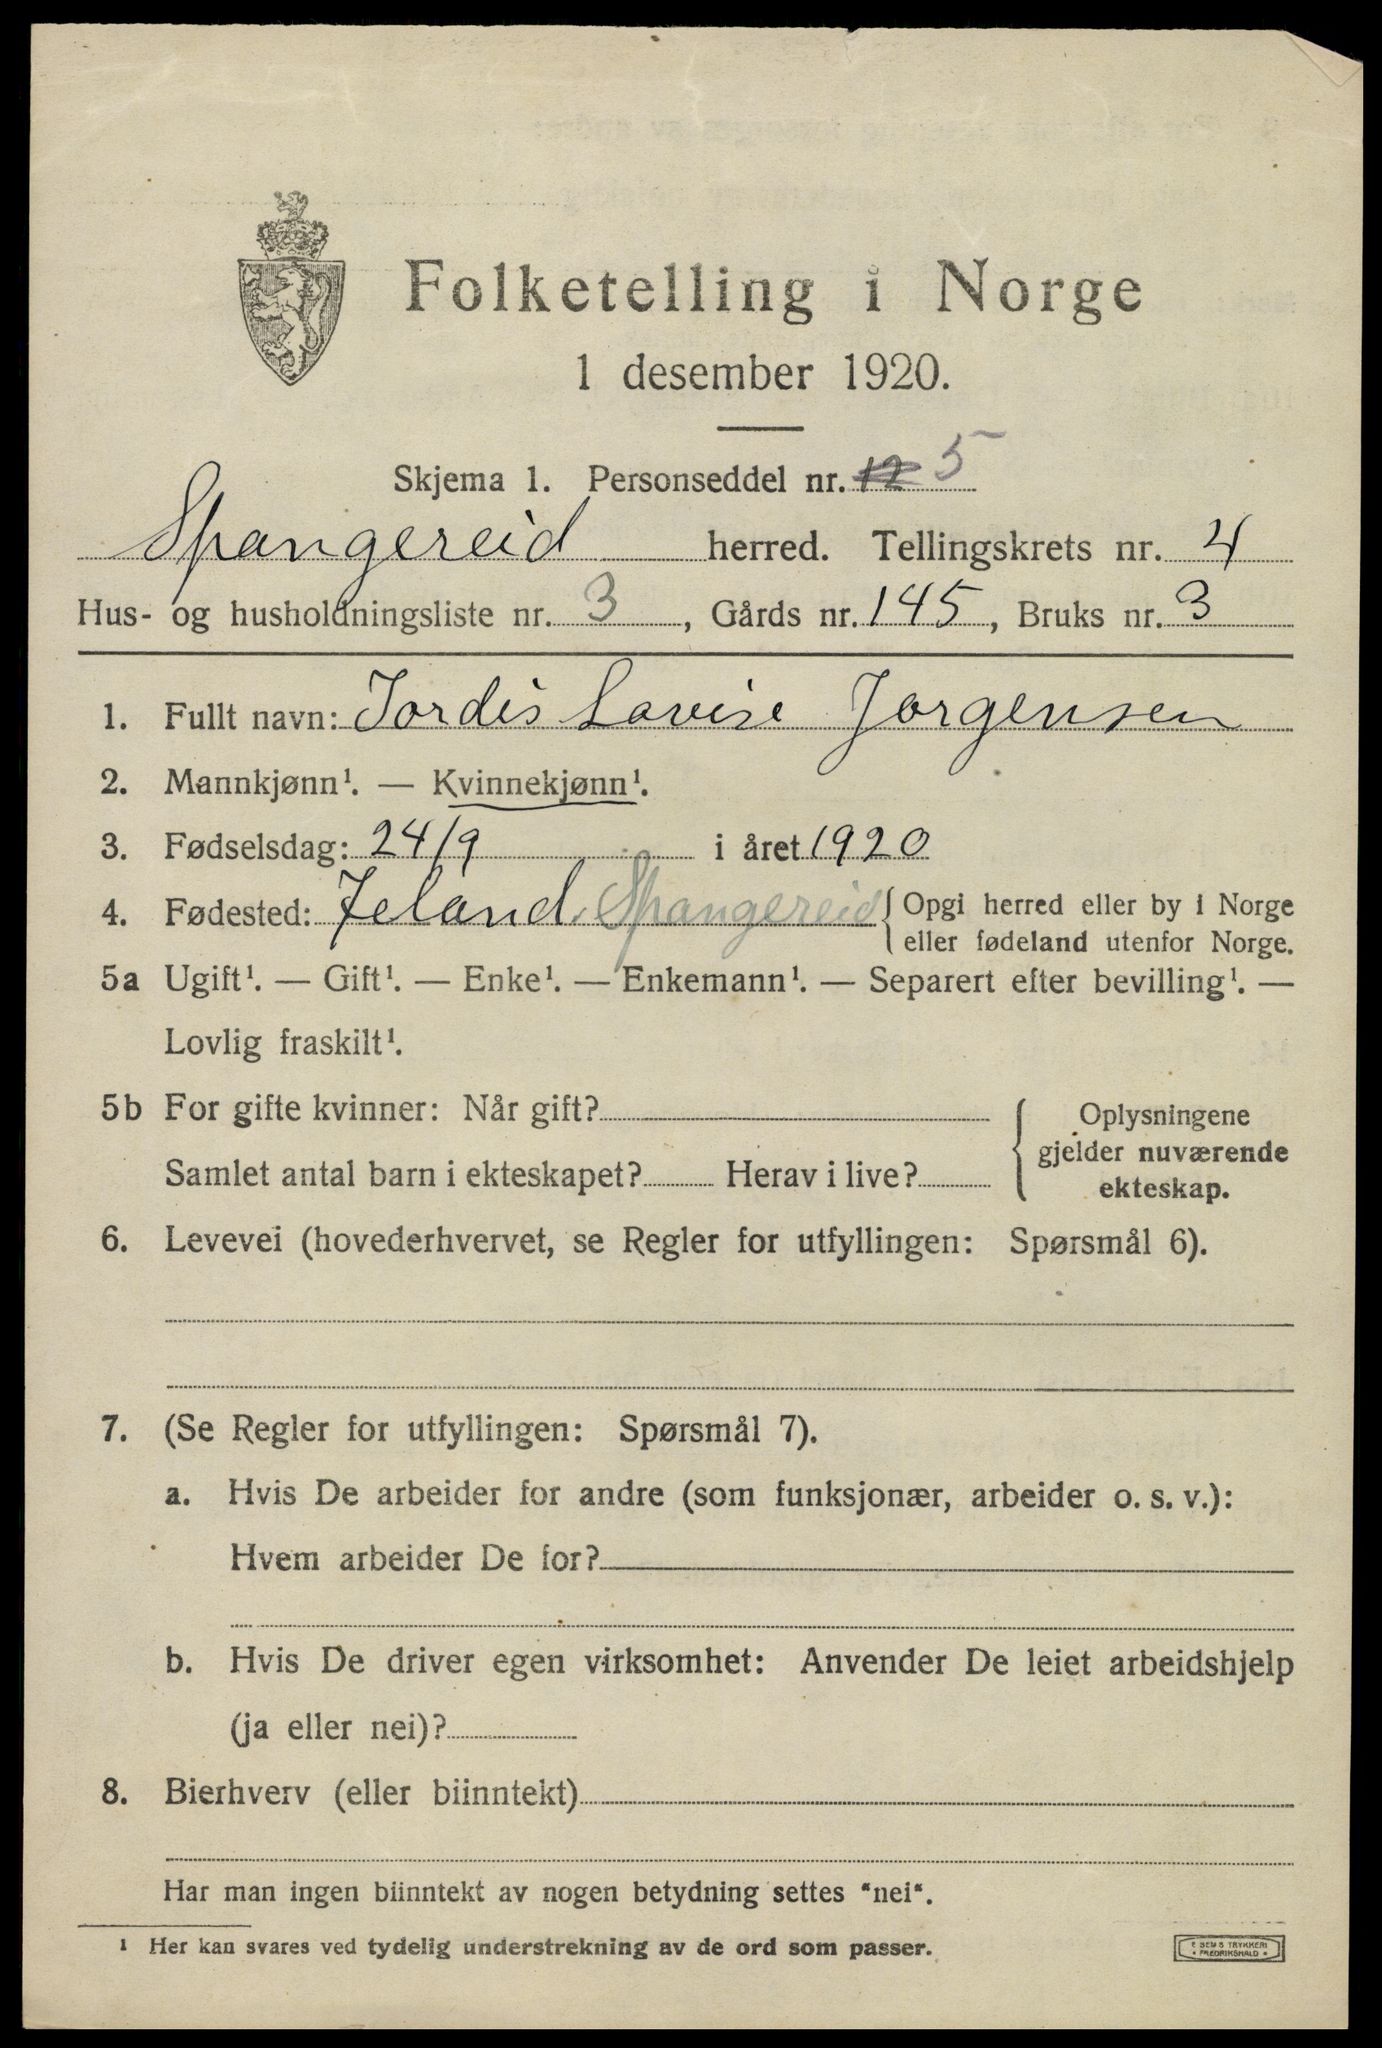 Folketelling i Norge
1 desember 1920.
Skjema 1. Personseddel nr. 12 5
Spangereid herred. Tellingskrets nr. 4
Hus- og husholdningsliste nr. 3, Gårds nr. 145, Bruks nr. 3
1. Fullt navn: Jordis Lovise Jørgensen
2. Mannkjønn¹. — Kvinnekjønn¹.
3. Fødselsdag: 24/9 i året 1920
4. Fødested: Jeland. Spangereid { Opgi herred eller by i Norge
eller fødeland utenfor Norge.
5a Ugift¹. — Gift¹. — Enke¹. — Enkemann¹. — Separert efter bevilling¹. —
Lovlig fraskilt¹.
5b For gifte kvinner: Når gift? { Oplysningene
gjelder nuværende
Samlet antal barn i ekteskapet? Herav i live? ekteskap.
6. Levevei (hovederhvervet, se Regler for utfyllingen: Spørsmål 6).
7. (Se Regler for utfyllingen: Spørsmål 7).
a. Hvis De arbeider for andre (som funksjonær, arbeider o. s. v.):
Hvem arbeider De for?
b. Hvis De driver egen virksomhet: Anvender De leiet arbeidshjelp
(ja eller nei)?
8. Bierhverv (eller biinntekt)
Har man ingen biinntekt av nogen betydning settes "nei".
¹ Her kan svares ved tydelig understrekning av de ord som passer.
E SEMS TRYKKERI
• FREDRIKSHALD •